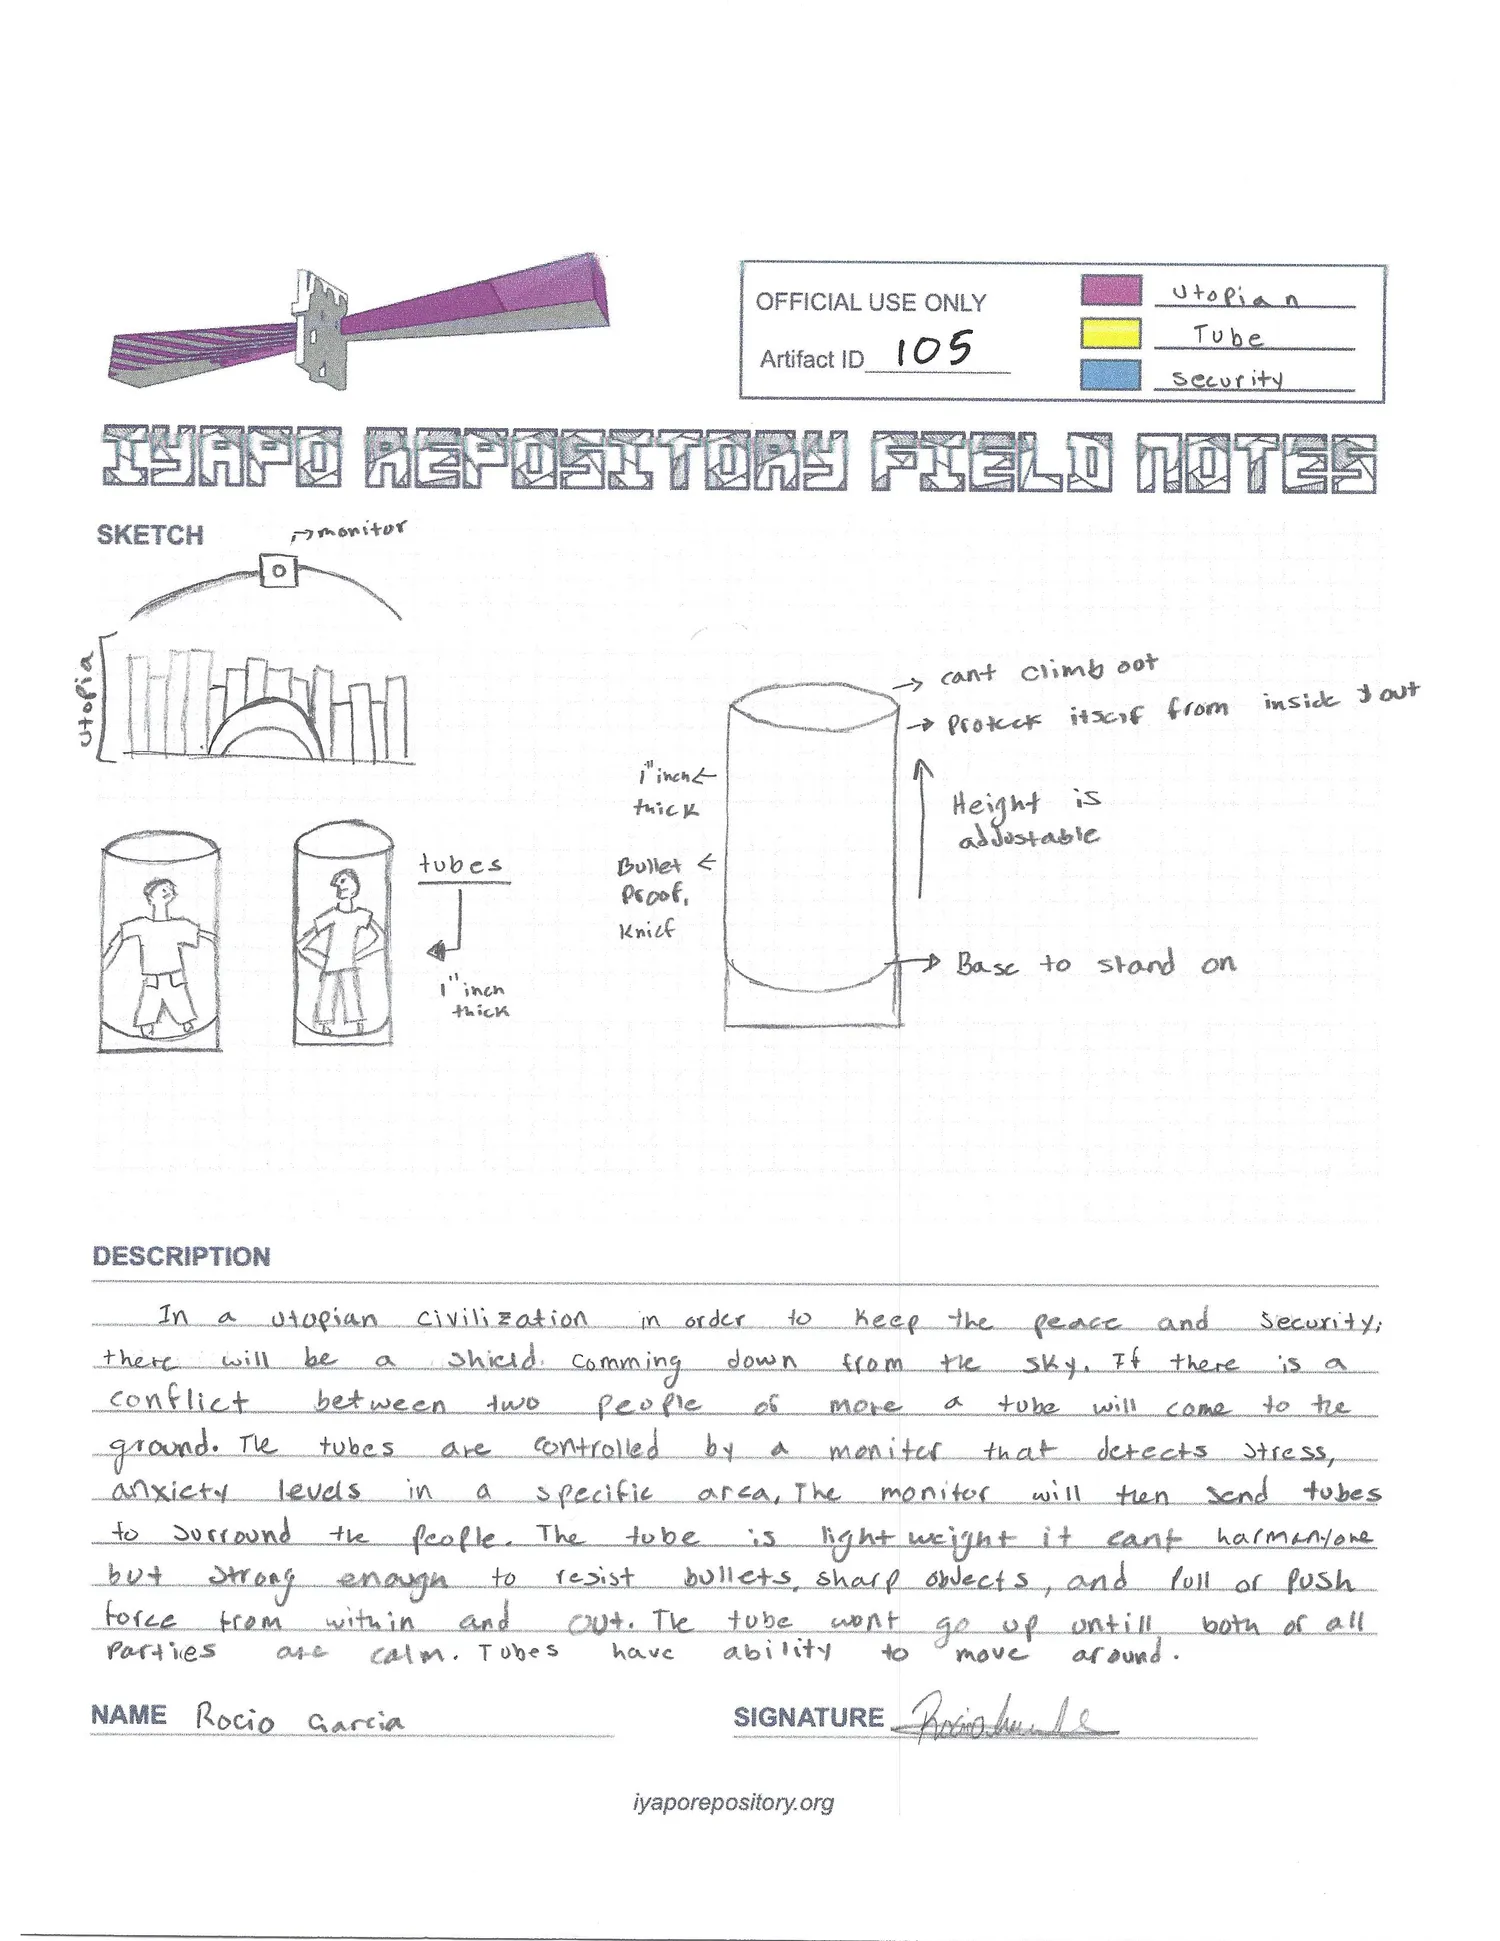 OFFICIAL USE ONLY
Artifact ID 105
Utopian
Tube
security
IYAPO REPOSITORY FIELD NOTES
SKETCH
→monitor
utopia
tubes
1" inch
thick
→ cant climb oot
→ Proteck itself from inside & out
1" inch ←
thick
Bullet ←
Proof,
Knief
Height is
addustable
→ Base to stand on
DESCRIPTION
In a utopian civilization in order to keep the peace and security;
there will be a shield comming down from the sky. If there is a
conflict between two people or more a tube will come to the
ground. The tubes are controlled by a moniter that detects stress,
anxiety levels in a specific area, The monitor will then send tubes
to surround the people. The tube is light weight it cant harm anyone
but strong enough to resist bullets, sharp objects, and pull or push
force from within and out. The tube wont go up untill both or all
parties are calm. Tubes have ability to move around.
NAME Rocio Garcia
SIGNATURE
iyaporepository.org